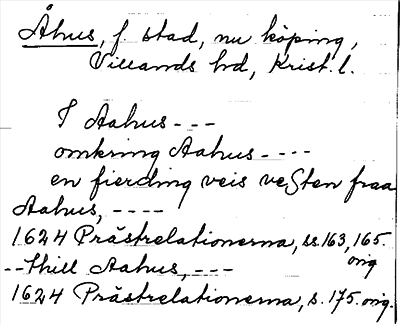 Åhus, f. stad, nu köping,
Villands hd, Krist. l.
I Aahus - - -
omkring Aahus - - - -
en fierding veis veSten fraa
Aahus, - - - -
1624 Prästrelationerna, ss. 163, 165.
orig
- - thill Aahus, - - -
1624 Prästrelationerna, s. 175. orig.